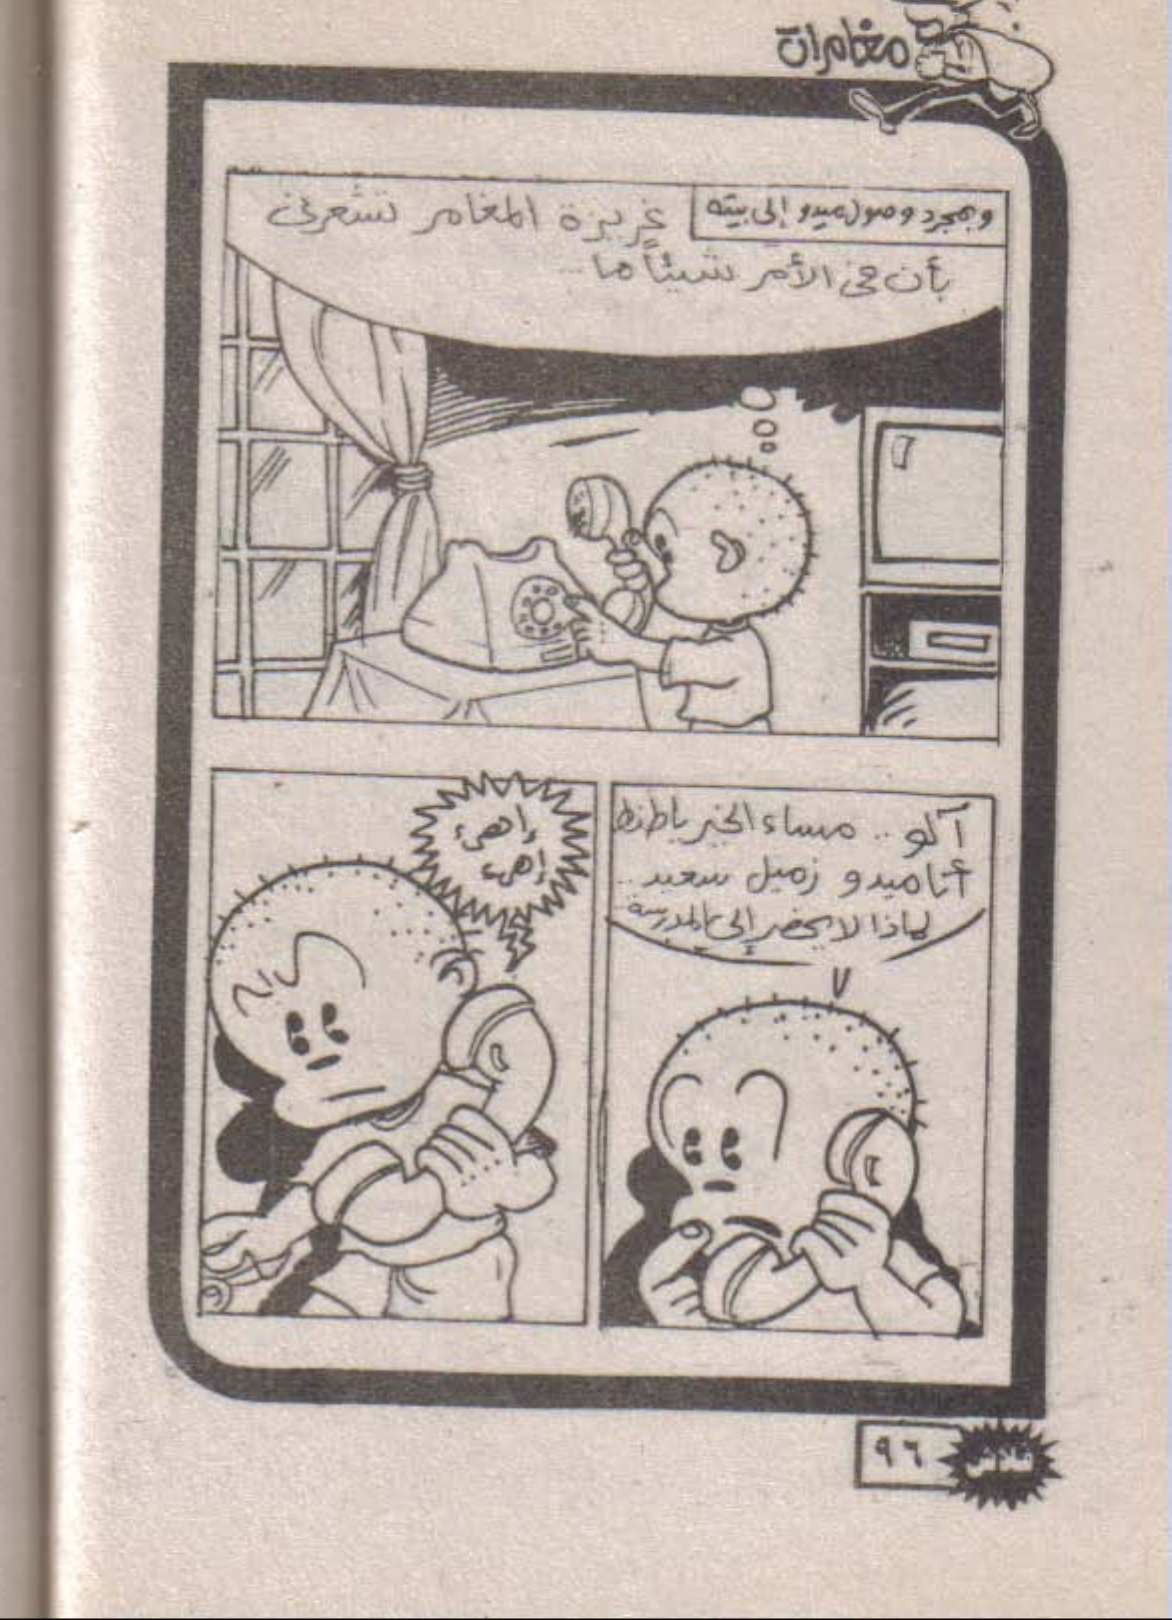 مغامرات
وبمجرد وصول ميدو إلى بيته
غريزة المغامر تشعرنى
بأن فى الأمر شيئاً ما..
آلو.. مساء الخير ياطنط
أنا ميدو زميل سعيد..
لماذا لا يحضر إلى المدرسة
إهىء
إهىء
فلاش
٩٦